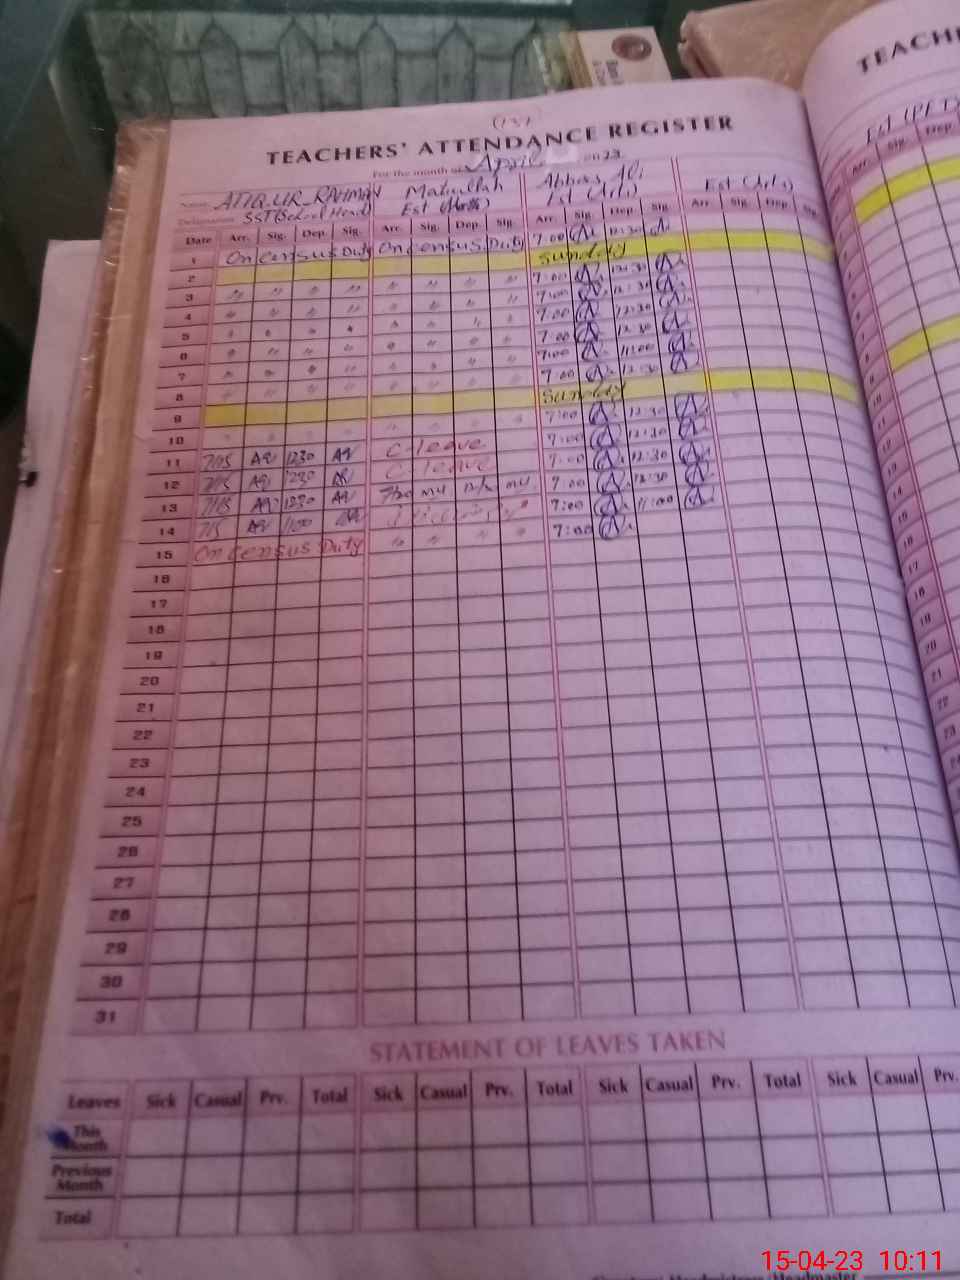 (151)
TEACHERS' ATTENDANCE REGISTER
For the month of April 2023
Name ATIQ.UR_RAHMAN Matiullah Abbas Ali
Designation SST (School Head) Est (Arts) Est (Arts)
Date Arr. Sig. Dep. Sig. Arr. Sig. Dep. Sig. Arr. Sig. Dep. Sig. Arr. Sig. Dep. Sig.
1 On Census Duty On Census Duty 7:00 A 12:30 A
2 Sunday
3 " " " " " " " " 7:00 A 12:30 A
4 " " " " " " " " 7:00 A 12:30 A
5 " " " " " " " " 7:00 A 12:30 A
6 " " " " " " " " 7:00 A 12:30 A
7 " " " " " " " " 7:00 A 11:00 A
8 " " " " " " " " 7:00 A 12:30 A
9 Sunday
10 " " " " " " " " 7:00 A 12:30 A
11 7/15 AR 1230 AR C-leave 7:00 A 12:30 A
12 7/15 AR 1230 AR C-leave 7:00 A 12:30 A
13 7/15 AR 1230 AR 7/20 MU 12/30 MU 7:00 A 12:30 A
14 7/15 AR 1100 AR 7:00 A 11:00 A
15 On Census Duty " " " " 7:00 A
16
17
18
19
20
21
22
23
24
25
26
27
28
29
30
31
STATEMENT OF LEAVES TAKEN
Leaves Sick Casual Prv. Total Sick Casual Prv. Total Sick Casual Prv. Total Sick Casual Prv.
This Month
Previous Month
Total
TEACH
Arr. Sig. Dep.
15-04-23 10:11